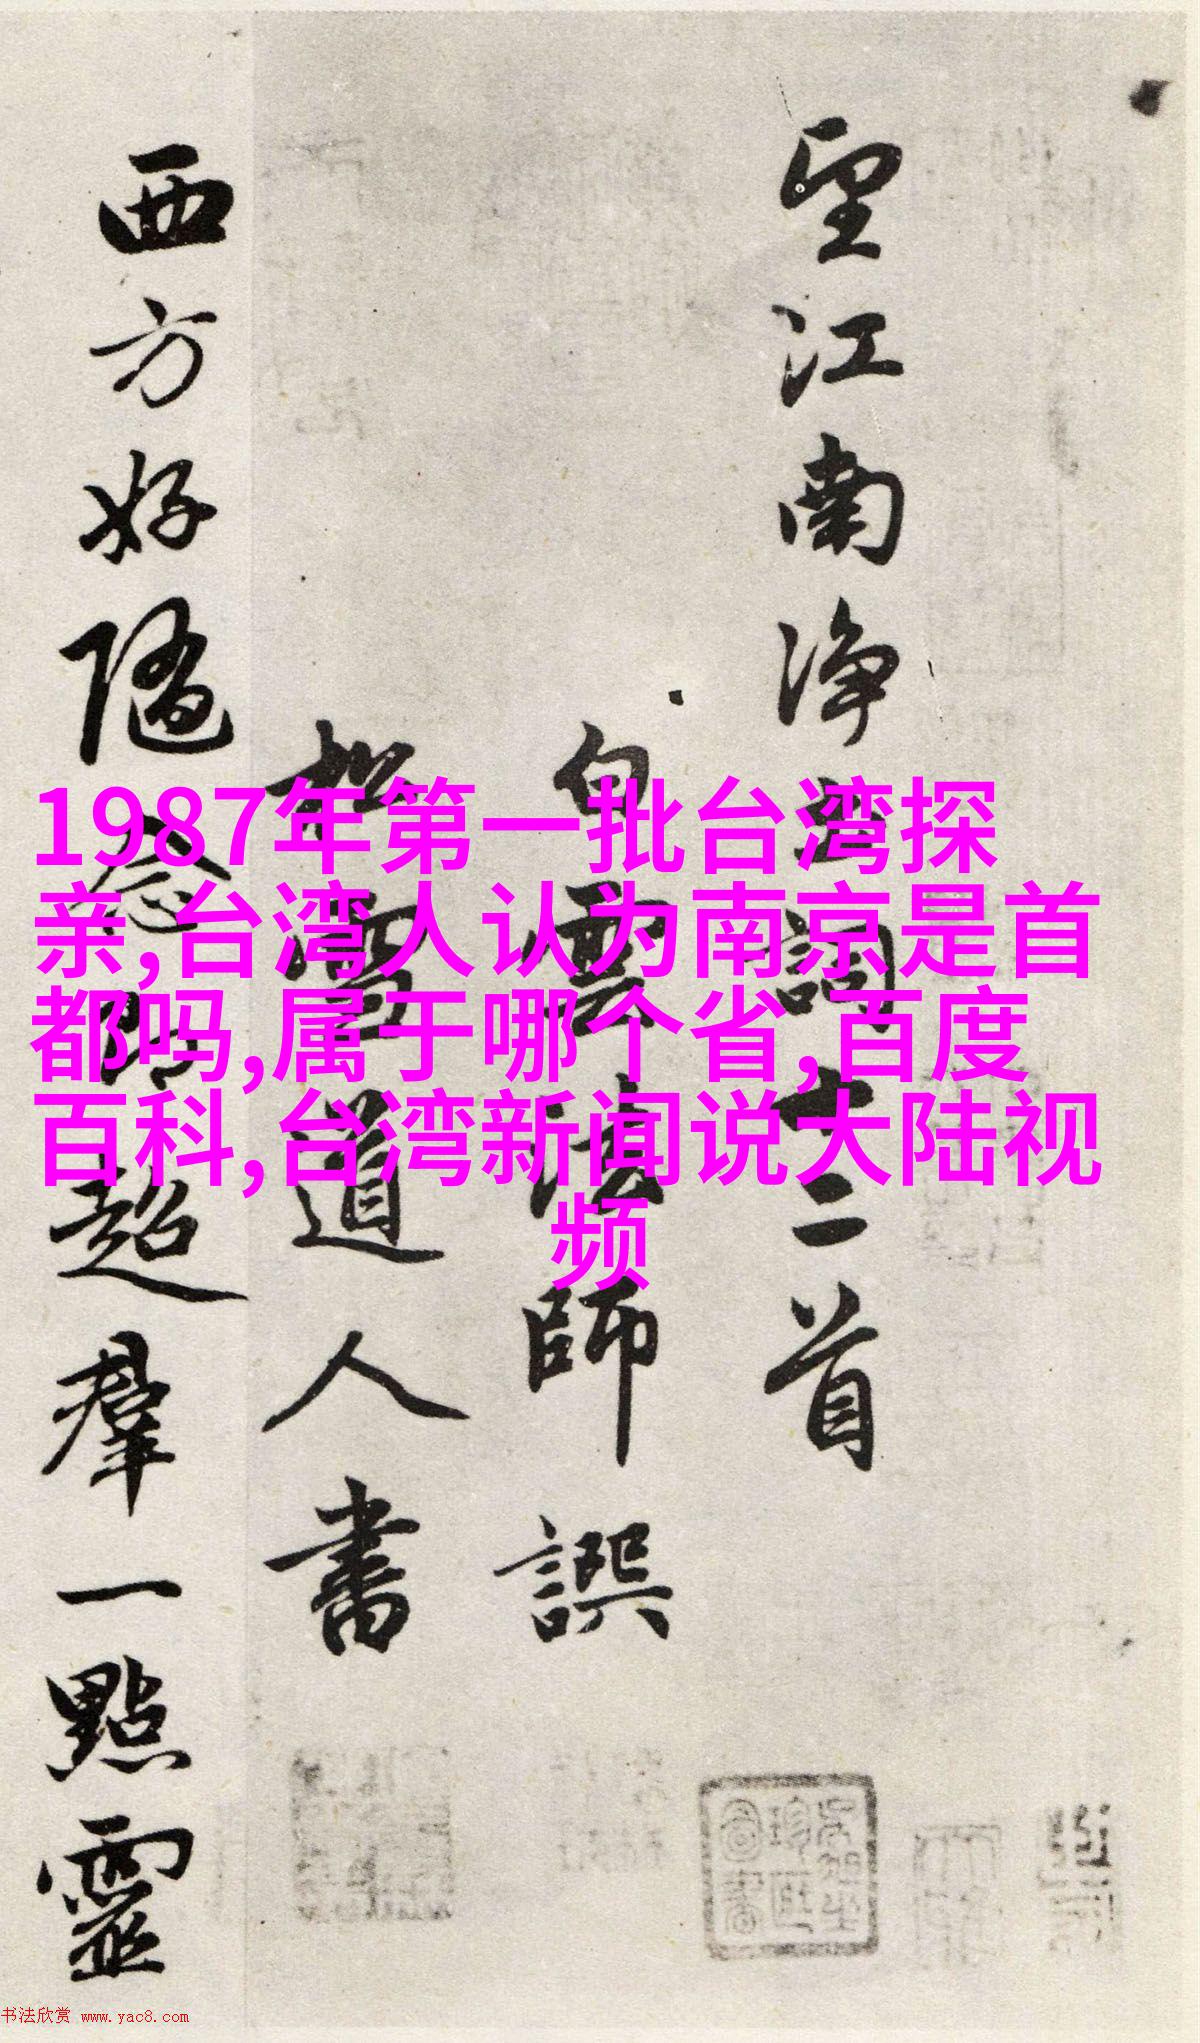 1987年第一批台湾探
亲,台湾人认为南京是首
都吗,属于哪个省,百度
百科,台湾新闻说大陆视
频
望江南净土詞十二首
白雲法師譔
松雪道人書
西方好隨念即超羣一點靈
书法欣赏 www.yac8.com